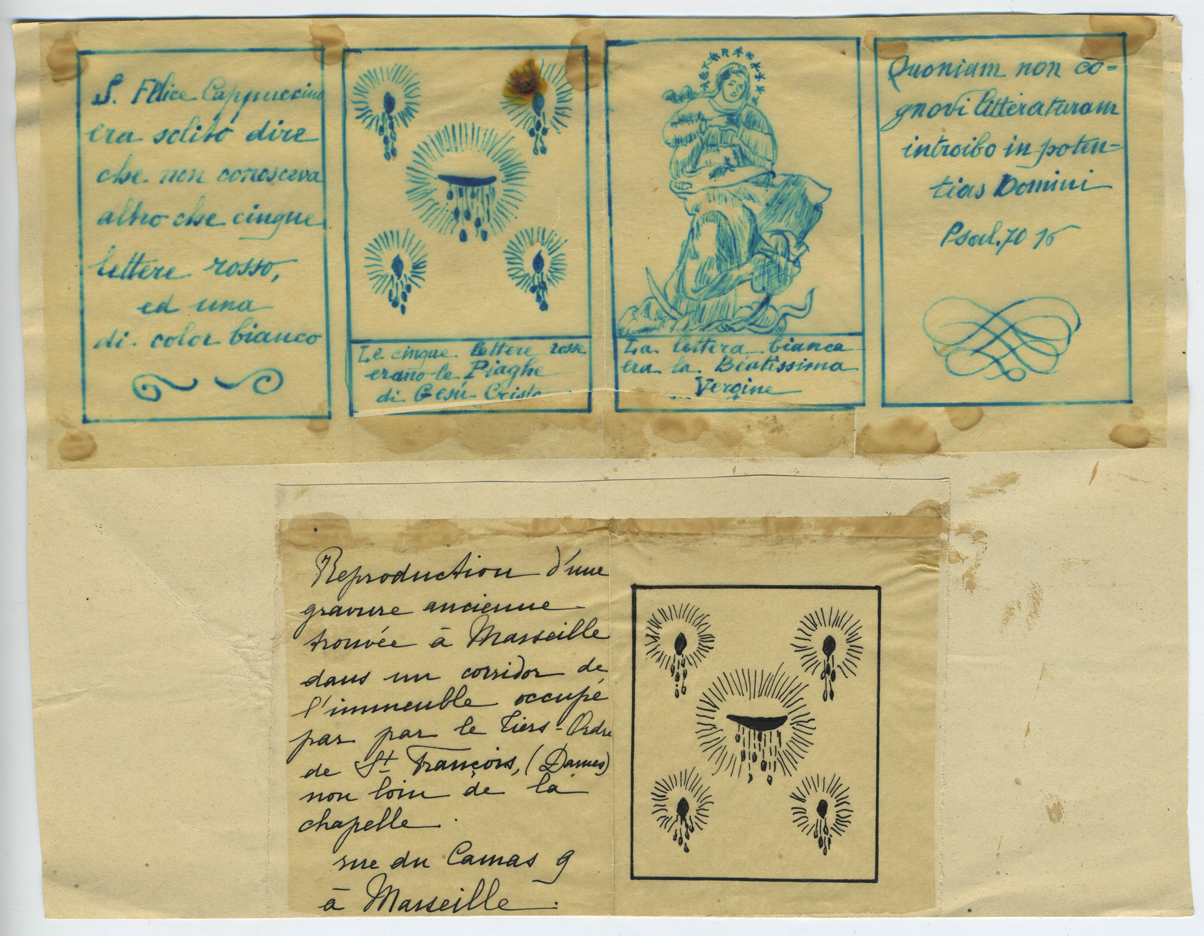 S. Felice Cappuccino
era solito dire
che non conosceva
altro che cinque
lettere rosso,
ed una
di color bianco
Le cinque lettere rosse
erano le Piaghe
di Gesú Cristo
La lettera bianca
era la Beatissima
Vergine
Quoniam non co-
gnovi litteraturam
introibo in poten-
tias Domini
Psal. 70 16
Reproduction d'une
gravure ancienne
trouvée à Marseille
dans un corridor de
l'immeuble occupé
par par le Tiers-Ordre
de St François, (Dames)
non loin de la
chapelle.
rue du Camas 9
à Marseille.